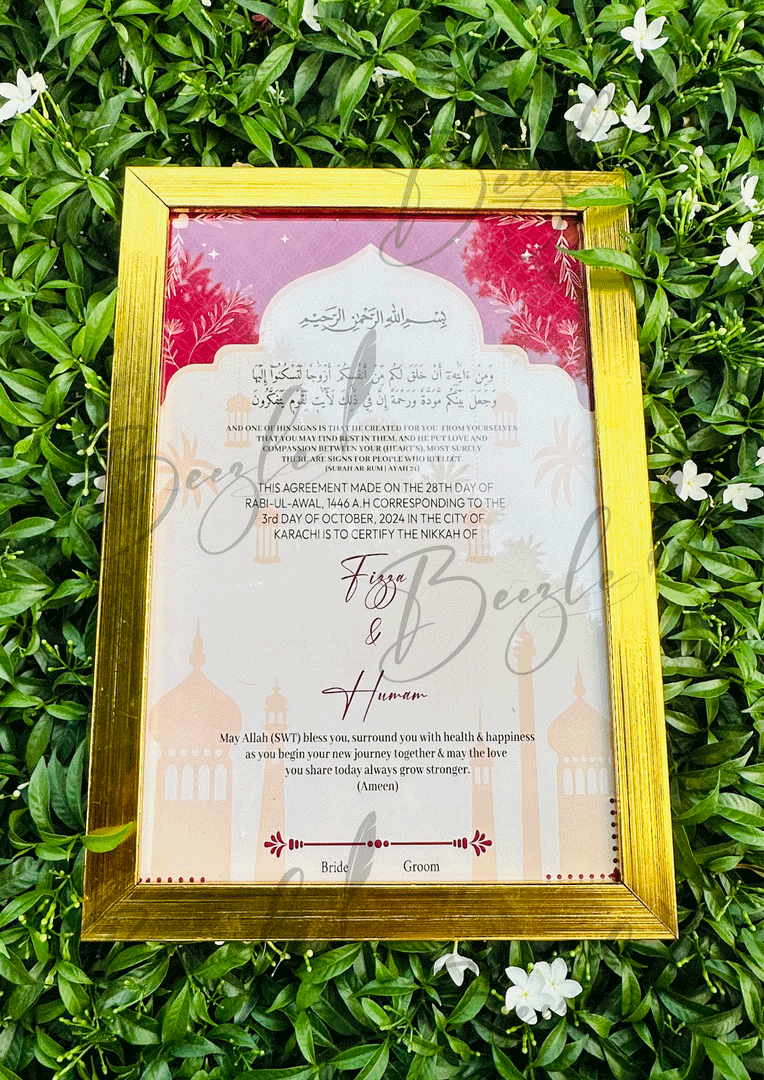 بِسْمِ اللهِ الرَّحْمٰنِ الرَّحِيْمِ
وَمِنْ ءَايَٰتِهِۦٓ أَنْ خَلَقَ لَكُم مِّنْ أَنفُسِكُمْ أَزْوَٰجًا لِّتَسْكُنُوٓا۟ إِلَيْهَا
وَجَعَلَ بَيْنَكُم مَّوَدَّةً وَرَحْمَةً إِنَّ فِي ذَٰلِكَ لَآيَٰتٍ لِّقَوْمٍ يَتَفَكَّرُونَ
AND ONE OF HIS SIGNS IS THAT HE CREATED FOR YOU FROM YOURSELVES
THAT YOU MAY FIND REST IN THEM, AND HE PUT LOVE AND
COMPASSION BETWEEN YOUR (HEART'S). MOST SURELY
THERE ARE SIGNS FOR PEOPLE WHO REFLECT.
(SURAH AR-RUM | AYAH 21)
THIS AGREEMENT MADE ON THE 28TH DAY OF
RABI-UL-AWAL, 1446 A.H CORRESPONDING TO THE
3rd DAY OF OCTOBER, 2024 IN THE CITY OF
KARACHI IS TO CERTIFY THE NIKKAH OF
Fizza
&
Humam
May Allah (SWT) bless you, surround you with health & happiness
as you begin your new journey together & may the love
you share today always grow stronger.
(Ameen)
Bride Groom
Beezle